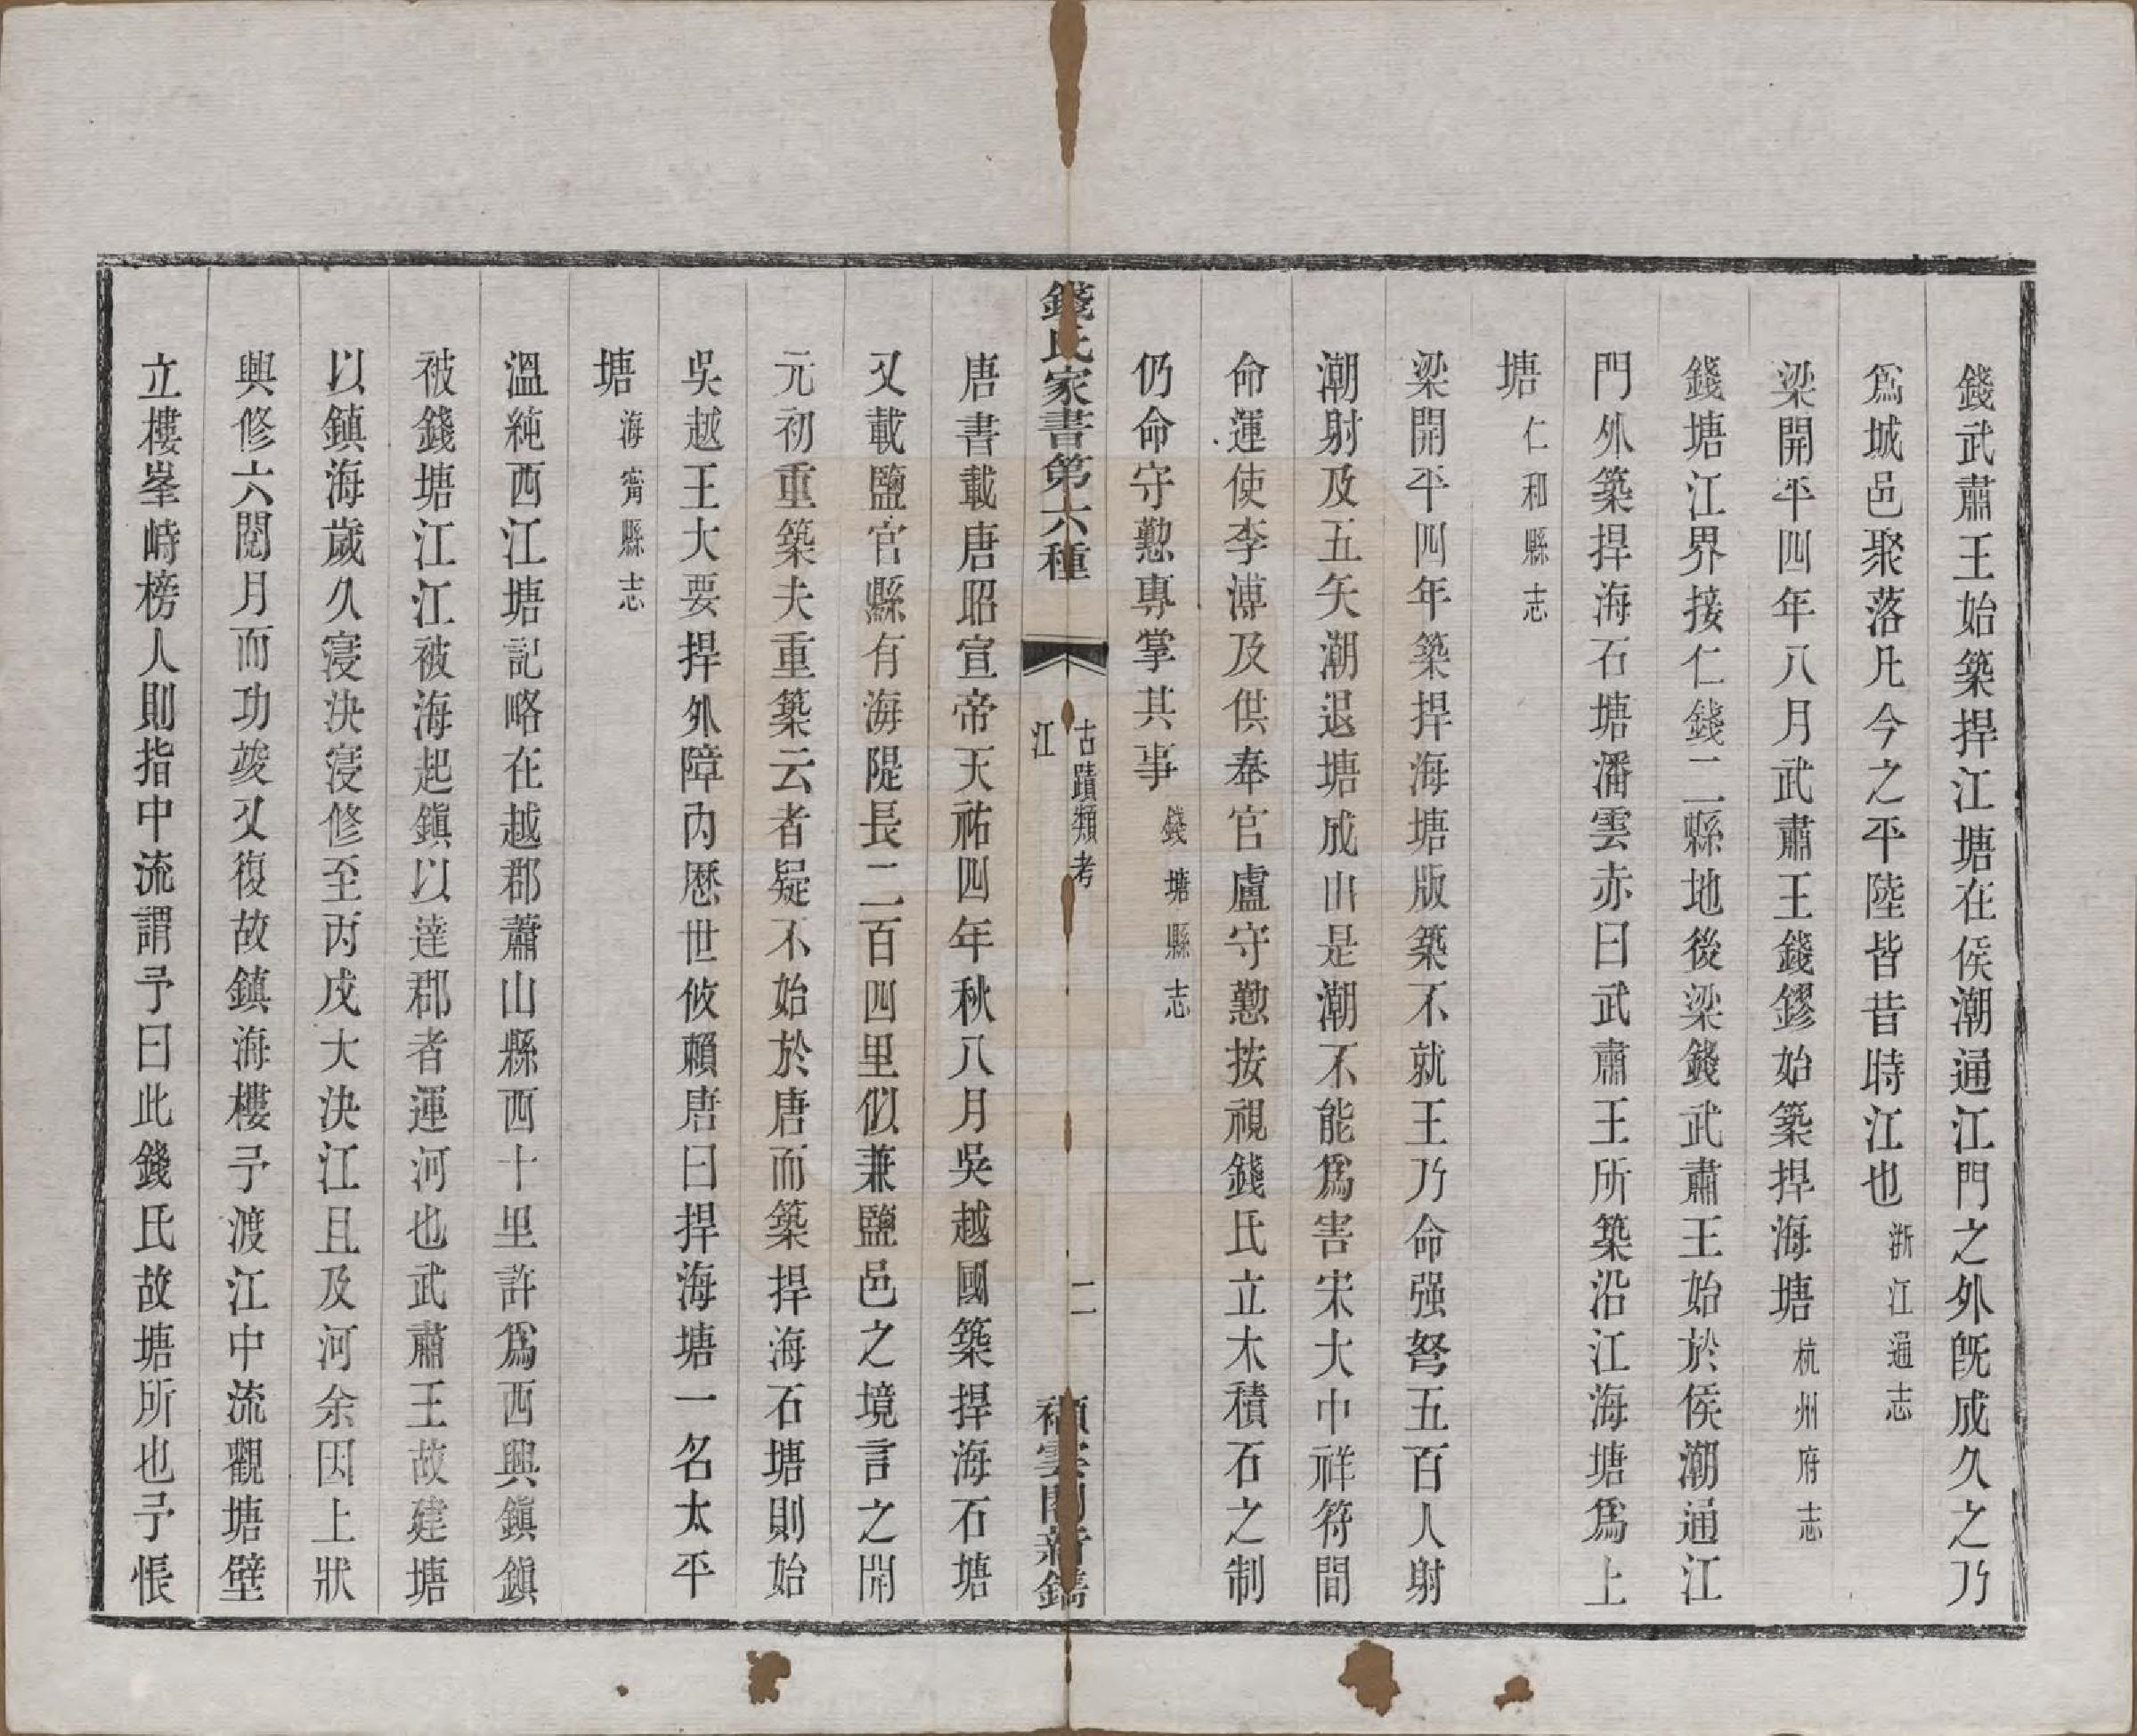 錢武肅王始築捍江塘在侯潮通江門之外旣成久之乃
爲城邑聚落凡今之平陸皆昔時江也浙江通志
梁開平四年八月武肅王錢鏐始築捍海塘杭州府志
錢塘江界接仁錢二縣地後梁錢武肅王始於侯潮通江
門外築捍海石塘潘雲赤曰武肅王所築沿江海塘爲上
塘仁和縣志
梁開平四年築捍海塘版築不就王乃命强弩五百人射
潮射及五矢潮退塘成由是潮不能爲害宋大中祥符間
命運使李溥及供奉官盧守懃按視錢氏立木積石之制
仍命守懃專掌其事錢塘縣志
錢氏家書第六種
古蹟類考
江
二
雲閣新鐫
唐書載唐昭宣帝天祐四年秋八月吳越國築捍海石塘
又載鹽官縣有海隄長二百四里似兼鹽邑之境言之開
元初重築夫重築云者疑不始於唐而築捍海石塘則始
吳越王大要捍外障內歷世攸賴唐曰捍海塘一名太平
塘海甯縣志
溫純西江塘記略在越郡蕭山縣西十里許爲西興鎭鎭
被錢塘江江被海起鎭以達郡者運河也武肅王故建塘
以鎮海歲久寖決寖修至丙戌大決江且及河余因上狀
興修六閱月而功竣又復故鎮海樓予渡江中流觀塘壁
立樓峯峙榜人則指中流謂予曰此錢氏故塘所也予悵